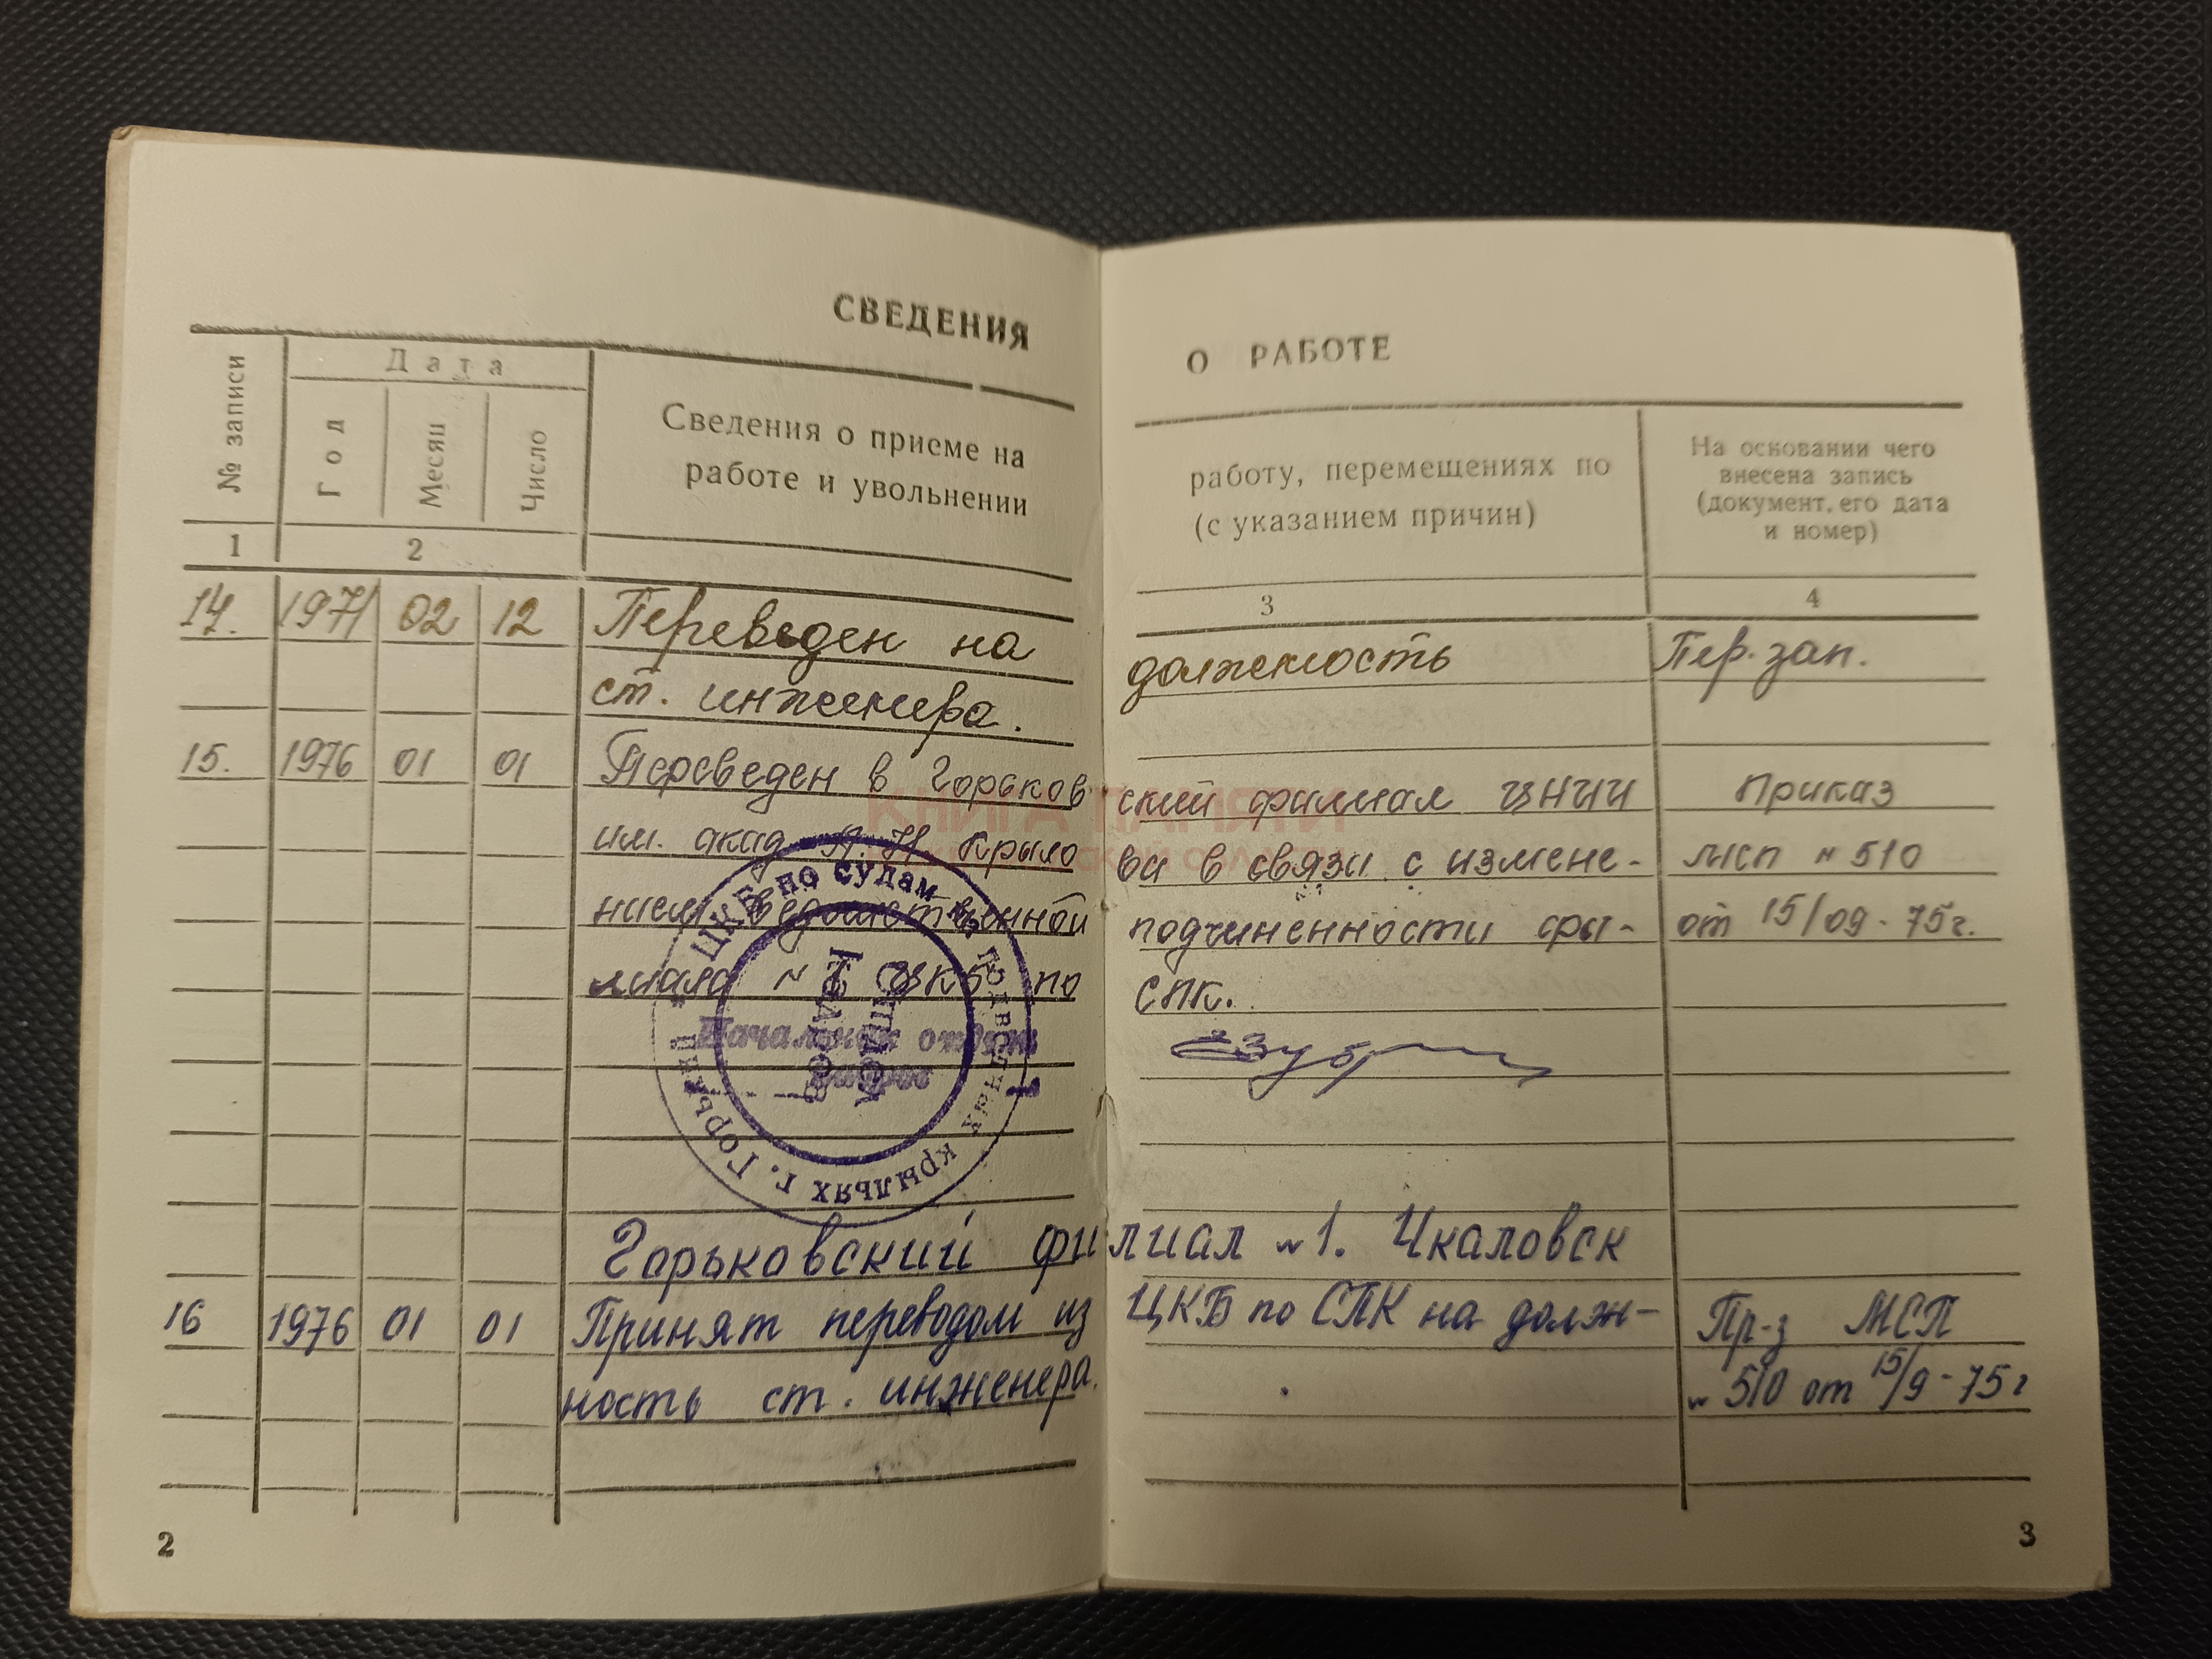 СВЕДЕНИЯ
О РАБОТЕ
№ записи
Дата
Год
Месяц
Число
Сведения о приеме на
работе и увольнении
работу, перемещениях по
(с указанием причин)
На основании чего
внесена запись
(документ, его дата
и номер)
1
2
3
4
14. 1971 02 12 Переведен на должность Пер. зап.
ст. инженера.
15. 1976 01 01 Переведен в Горьков ский филиал ЦНИИ Приказ
им. акад. А.Н Крыло ва в связи с измене- МСП N 510
нием ведомственной подчиненности фи- от 15/09-75г.
лиала N 1 ЦКБ по СПК.
Начальник отдела
кадров
ЦКБ по судам на подводных крыльях г. Горький
Горьковский филиал N1. Чкаловск
16 1976 01 01 Принят переводом из ЦКБ по СПК на долж- Пр-з МСП
ность ст. инженера. N 510 от 15/9-75г
КНИГА ПАМЯТИ
2
3